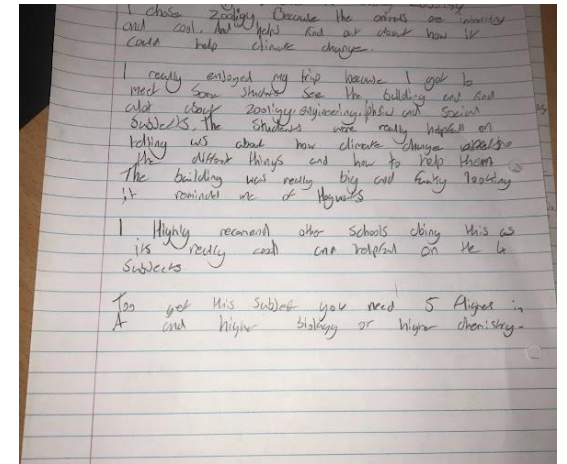 I chose Zooligy Because the animals are
and cool. And helps find out about how it
could help climate change.
I really enjoyed my trip because I got to
meet Some Students See the building and find
alot about zooligy, engineering, and Social
Subjects. The Students were really helpfull on
telling us about how climate change
the diffrent things and how to help them
The building was really big and funky looking
it reminds me of Hogwarts
I Highly recomend other Schools doing this as
its really cool and helpful on the 4
Subjects
Too get this Subject you need 5 Highers in
A and higher biology or higher chemistry.